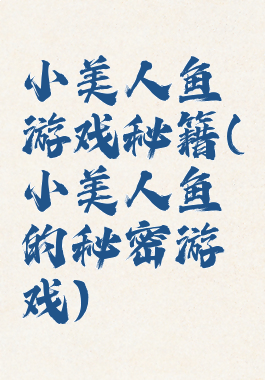 小美人鱼
游戏秘籍(
小美人鱼
的秘密游
戏)